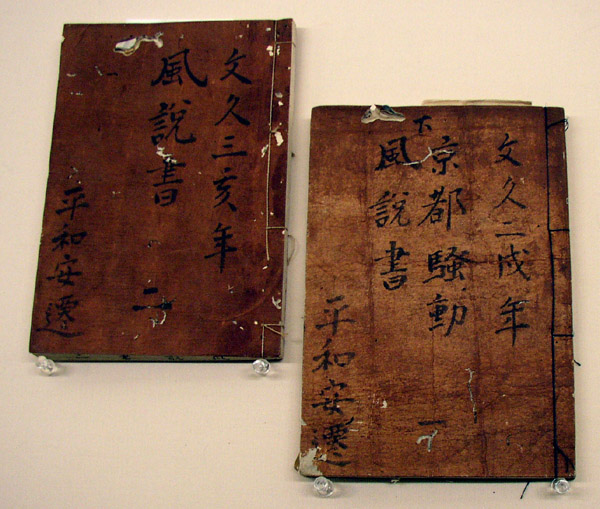 文久三亥年
風說書
二
平和安遷
文久二戌年
京都騷動
一
下
風說書
平和安遷